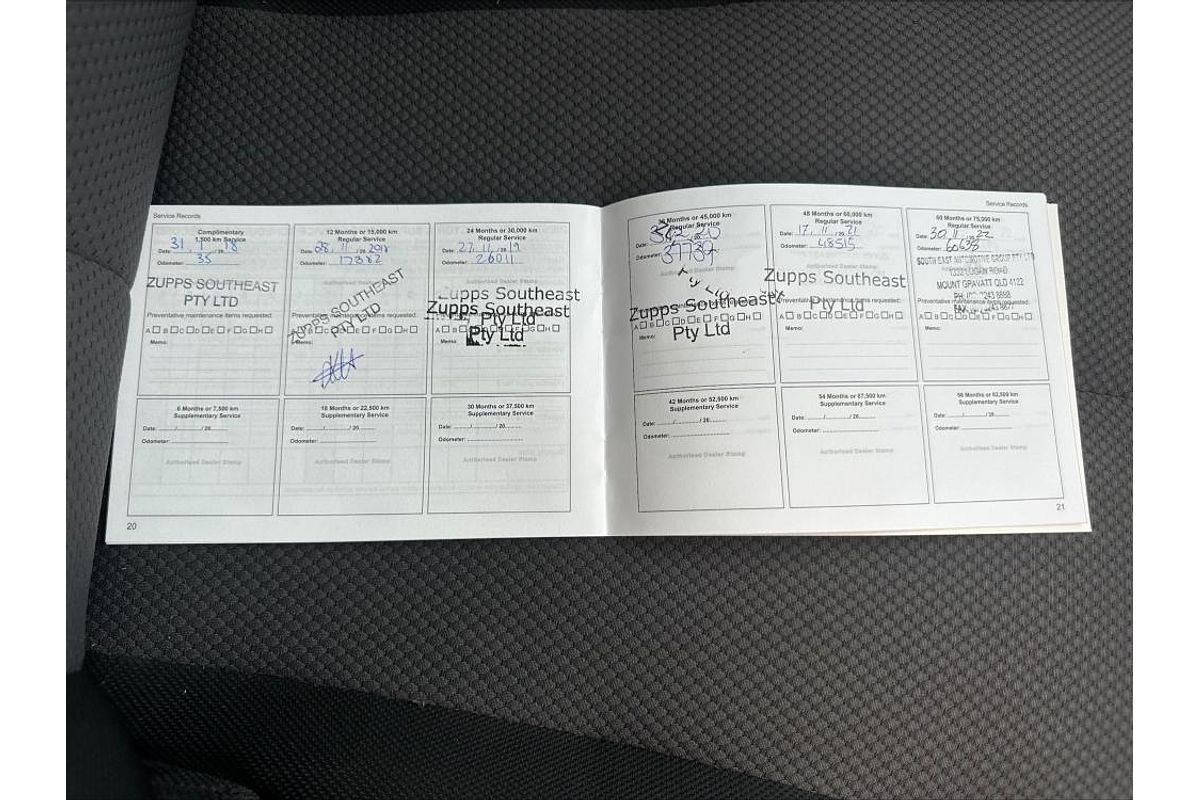 Service Records
Complimentary
1,500 km Service
Date: 31 / 1 / 20 18
Odometer: 35
ZUPPS SOUTHEAST
PTY LTD
Preventative maintenance items requested:
A B C D E F G H
Memo:
12 Months or 15,000 km
Regular Service
Date: 28 / 11 / 2018
Odometer: 17382
ZUPPS SOUTHEAST
PTY LTD
Preventative maintenance items requested:
A B C D E F G H
Memo:
24 Months or 30,000 km
Regular Service
Date: 27 / 11 / 20 19
Odometer: 26011
Authorised Dealer Stamp
Zupps Southeast
Pty Ltd
Zupps Southeast
Pty Ltd
A B C D E F G H
Memo:
6 Months or 7,500 km
Supplementary Service
Date: ....../....../ 20......
Odometer: ..................
Authorised Dealer Stamp
18 Months or 22,500 km
Supplementary Service
Date: ....../....../ 20......
Odometer: ..................
Authorised Dealer Stamp
30 Months or 37,500 km
Supplementary Service
Date: ....../....../ 20......
Odometer: ..................
Authorised Dealer Stamp
20
Service Records
Months or 45,000 km
Regular Service
Date:
Odometer:
Zupps Southeast
Pty Ltd
A B C D E F G H
Memo:
48 Months or 60,000 km
Regular Service
Date: 17 / 11 / 20 21
Odometer: 48515
Zupps Southeast
Pty Ltd
Preventative maintenance items requested:
A B C D E F G H
Memo:
60 Months or 75,000 km
Regular Service
Date: 30 / 11 / 20 22
Odometer: 60635
SOUTH EAST AUTOMOTIVE GROUP PTY LTD
1332 LOGAN ROAD
MOUNT GRAVATT QLD 4122
Preventative maintenance items requested:
A B C D E F G H
Memo:
42 Months or 52,500 km
Supplementary Service
Date: ....../....../ 20......
Odometer: ..................
Authorised Dealer Stamp
54 Months or 67,500 km
Supplementary Service
Date: ....../....../ 20......
Odometer: ..................
Authorised Dealer Stamp
Months or 82,500 km
Supplementary Service
Date: ....../....../ 20......
Odometer: ..................
Authorised Dealer Stamp
21